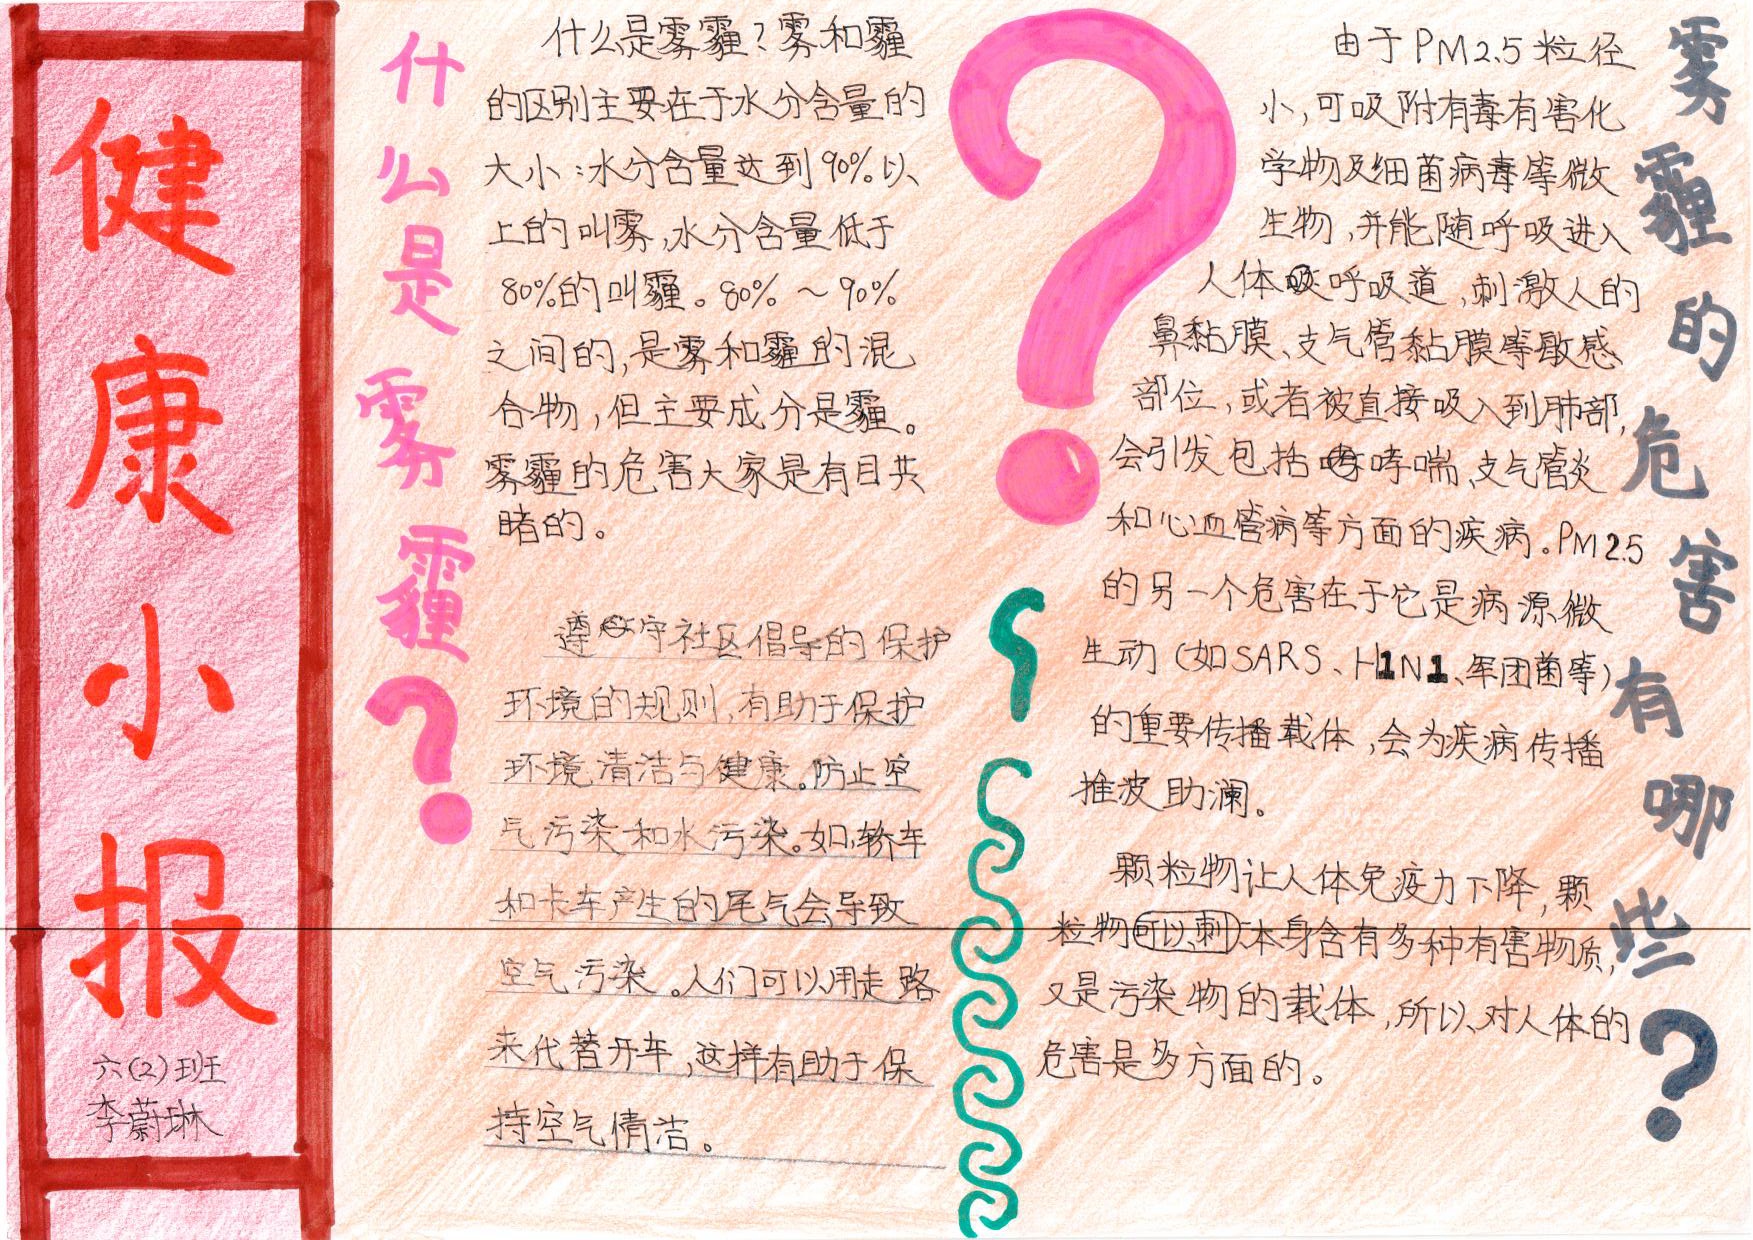 健康小报
六(2)班
李蔚琳
什么是雾霾?
什么是雾霾?雾和霾
的区别主要在于水分含量的
大小:水分含量达到90%以
上的叫雾,水分含量低于
80%的叫霾。80%～90%
之间的,是雾和霾的混
合物,但主要成分是霾。
雾霾的危害大家是有目共
睹的。
遵守社区倡导的保护
环境的规则,有助于保护
环境清洁与健康。防止空
气污染和水污染。如,轿车
和卡车产生的尾气会导致
空气污染。人们可以用走路
来代替开车,这样有助于保
持空气情洁。
雾霾的危害有哪些?
由于PM2.5粒径
小,可吸附有毒有害化
学物及细菌病毒等微
生物,并能随呼吸进入
人体呼吸道,刺激人的
鼻黏膜、支气管黏膜等敏感
部位,或者被直接吸入到肺部,
会引发包括哮喘、支气管炎
和心血管病等方面的疾病。PM2.5
的另一个危害在于它是病源微
生动(如SARS、H1N1、军团菌等)
的重要传播载体,会为疾病传播
推波助澜。
颗粒物让人体免疫力下降,颗
粒物可以刺本身含有多种有害物质,
又是污染物的载体,所以,对人体的
危害是多方面的。